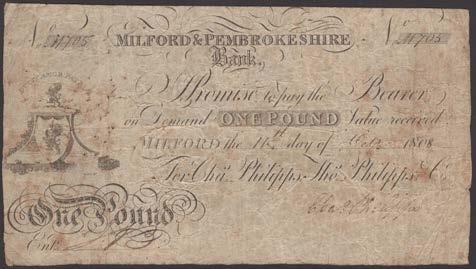 No. 11705 No. 11705
MILFORD & PEMBROKESHIRE
Bank,
I Promise to pay the Bearer
on Demand ONE POUND Value received
MILFORD the 16th day of 1808
For Chas. Philipps, Thos. Philipps & Co.
One Pound
Entd.